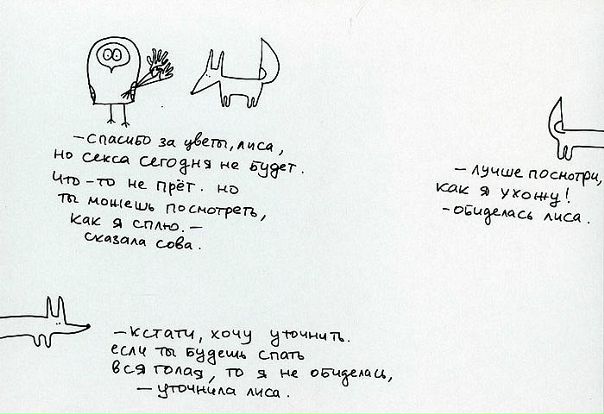 – спасибо за цветы, лиса,
но секса сегодня не будет.
что-то не прёт. но
ты можешь посмотреть,
как я сплю. –
сказала сова.
– лучше посмотри,
как я ухожу!
– обиделась лиса.
– кстати, хочу уточнить.
если ты будешь спать
вся голая, то я не обиделась,
– уточнила лиса.